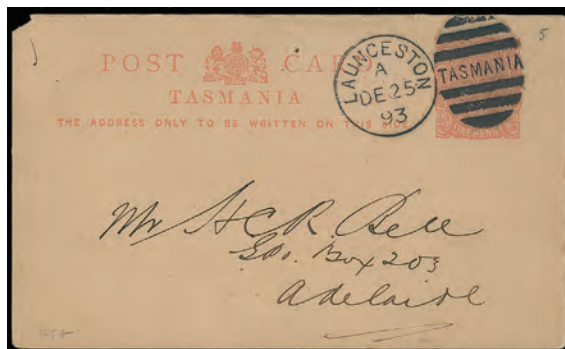 POST CARD
TASMANIA
THE ADDRESS ONLY TO BE WRITTEN ON THIS SIDE
LAUNCESTON
A
DE 25
93
TASMANIA
5
Mr H C R. Bell
G.P.O. Box 203
Adelaide